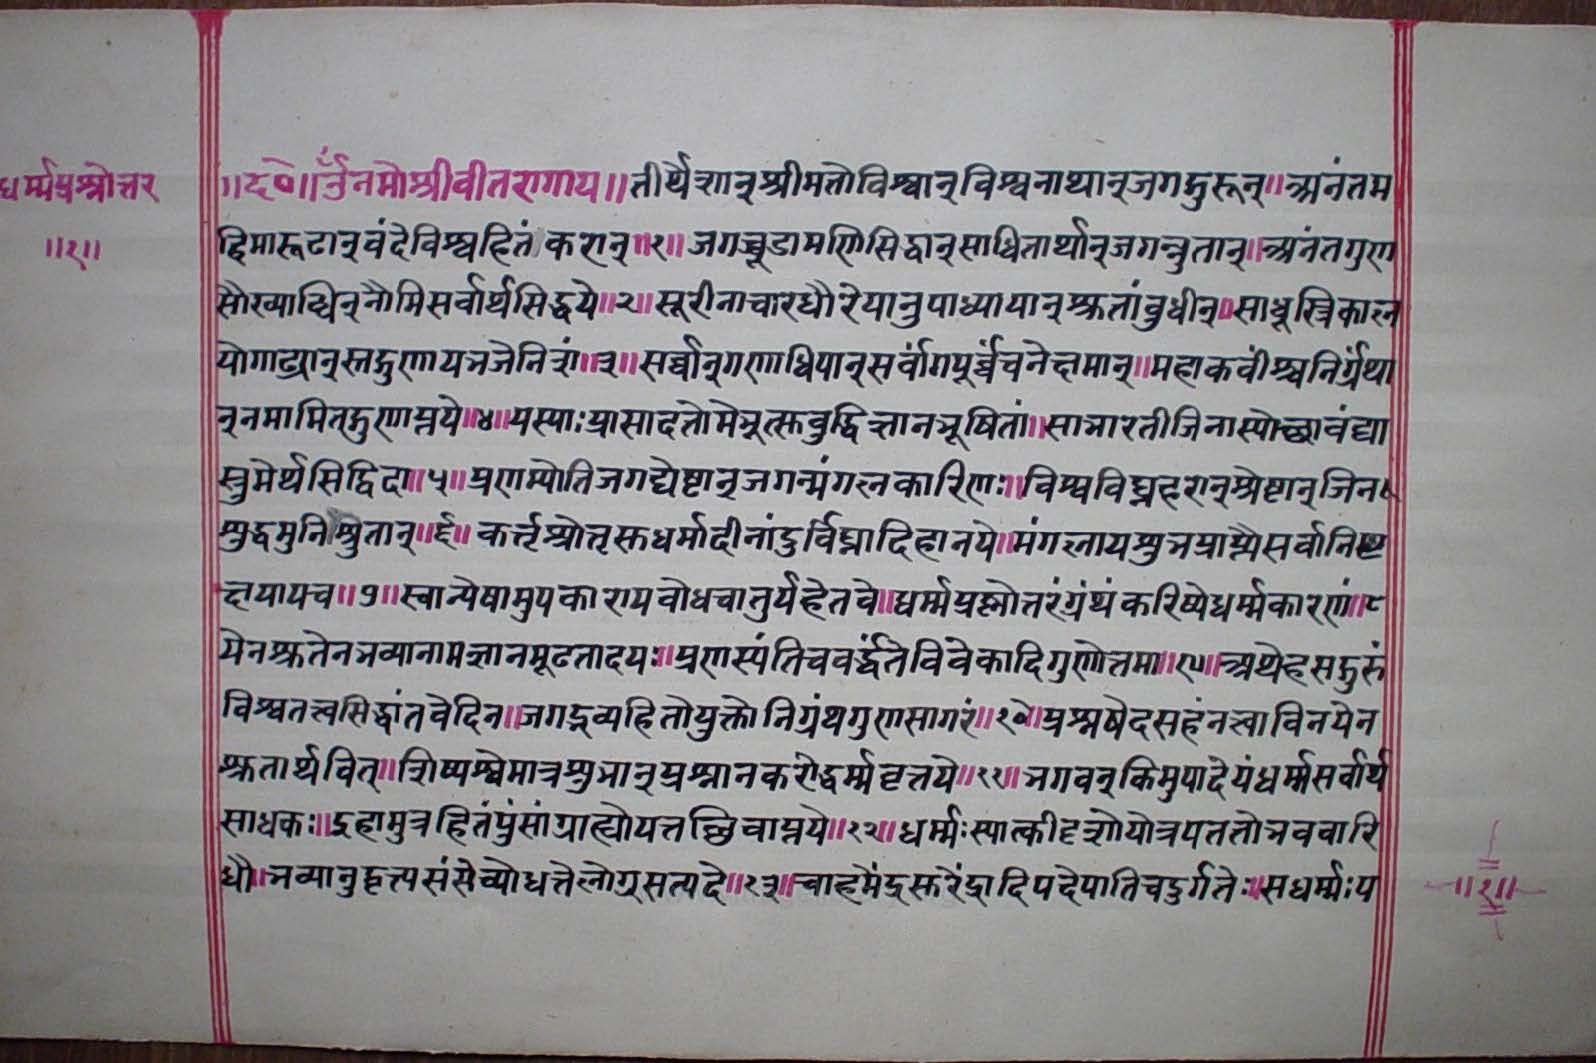 धर्म्मप्रश्नोत्तर
॥१॥
॥द६०॥ॐनमोश्रीवीतरागाय॥तीर्थेशान्श्रीमतोविश्वान्विश्वनाथान्जगद्गुरून्॥अनंतम
हिमारूढान्वंदेविश्वहितंकरान्॥१॥जगच्चूडामणिसिद्धान्साधितार्थान्जगन्नुतान्॥अनंतगुण
सौख्याब्धिन्नौमिसर्वार्थसिद्धये॥२॥सूरीनाचारधौरेयानुपाध्यायान्श्रुतांवुधीन्॥साधूस्त्रिकाल
योगाढ्यान्स्तद्गुणायभजेनिशं॥३॥सर्व्वान्गणाधिपान्सर्वांगपूर्व्वरचनेक्षमान्॥महाकवींश्चनिर्ग्रंथा
न्नमामितद्गुणाप्तये॥४॥यस्याःप्रासादतोमेभूत्सद्वुद्धिज्ञानभूषितां॥साभारतीजिनास्योत्थावंद्या
स्तुमेर्थसिद्धिदा॥५॥प्रणम्येतिजगद्येष्टान्जगन्मंगलकारिणः॥विश्वविघ्नहरान्श्रेष्टान्जिन
शुद्धमुनिश्रुतान्॥६॥कर्त्तृश्रोतृस्तधर्मादीनांदुर्विघ्नादिहानये॥मंगलायशुभप्राप्त्यैसर्वानिष्ट
क्षयायच॥७॥स्वान्येषामुपकारायवोधचातुर्यहेतवे॥धर्म्मप्रश्नोत्तरंग्रंथंकरिष्येधर्म्मकारणं॥८
येनश्रुतेनभव्यानामज्ञानमूढतादयः॥प्रणस्यंतिचवर्द्धंतेविवेकादिगुणोत्तमा॥९॥अथेहसद्गुरुं
विश्वतत्त्वसिद्धांतवेदिन॥जगद्भव्यहितोयुक्तोनिग्रंथगुणसागरं॥१०॥प्रश्नषैदसहंनत्वाविनयेन
श्रुतार्थवित्॥शिष्यश्चेमात्रशुभान्प्रश्नानकरोद्धर्म्मवृत्तये॥११॥भगवन्किमुपादेयंधर्म्मसर्वार्थ
साधकः॥इहामुत्रहितंपुंसांग्राह्योयत्तछिवाप्तये॥१२॥धर्म्मःस्यात्कीदृशोयोत्रपततोभववारि
धौ॥भव्यानुद्धृत्यसंसेव्योधत्तेलोग्रसत्पदे॥१३॥चाहमेंद्रस्तरेंद्रादिपदेपातिचदुर्गतेः॥सधर्म्मःप
॥१॥